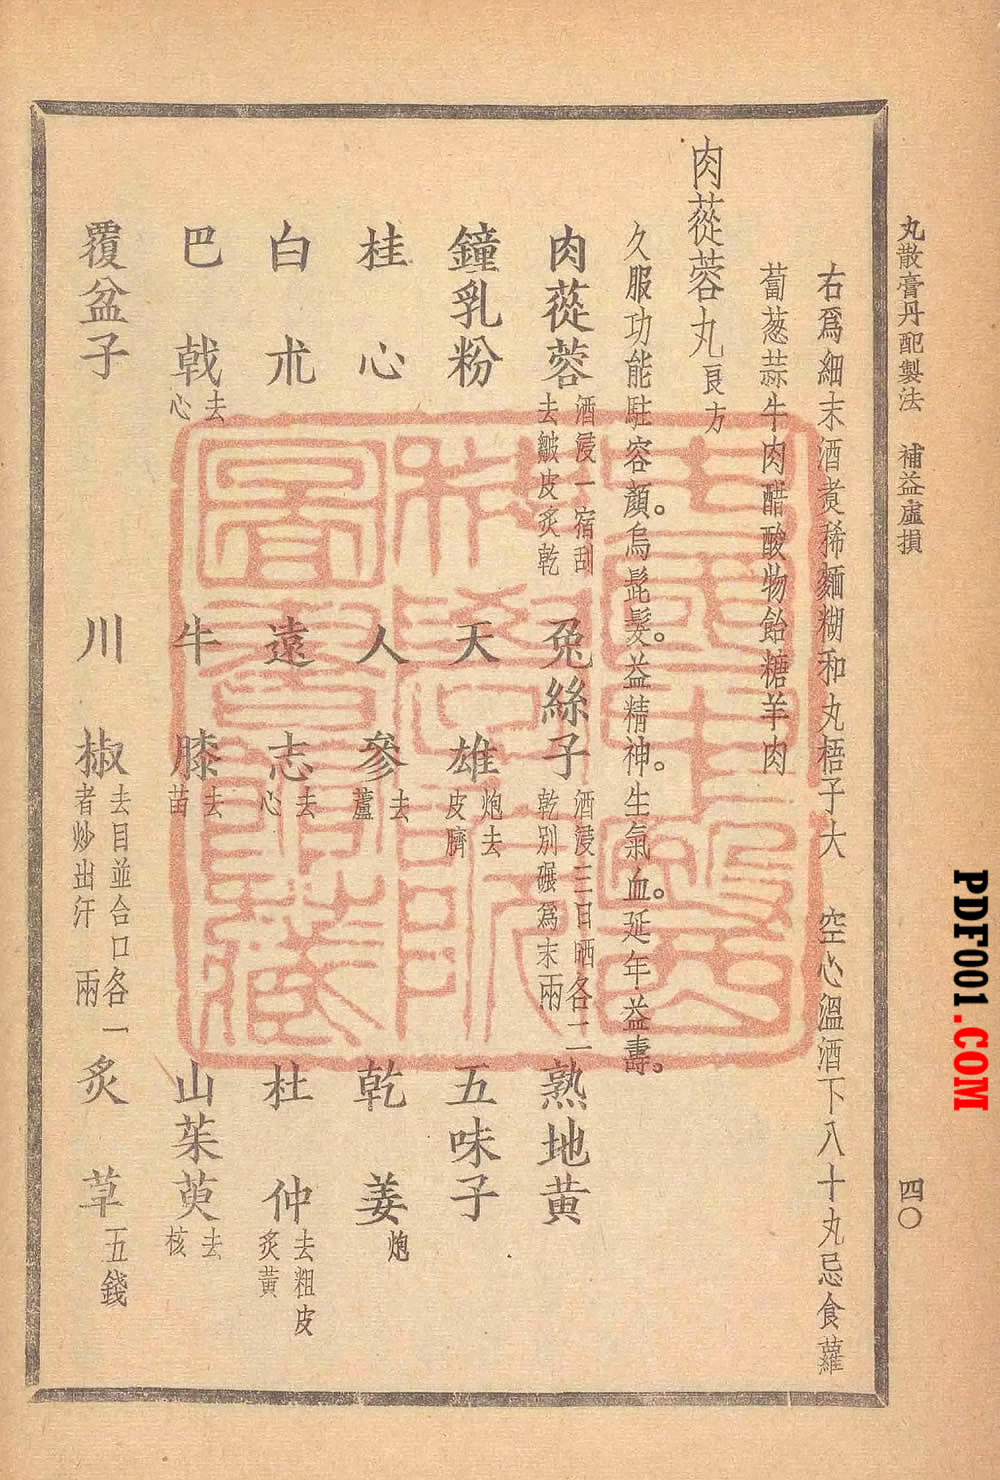 丸散膏丹配製法　補益虛損
四〇
右爲細末酒煮稀麵糊和丸梧子大　空心溫酒下八十丸忌食蘿
蔔葱蒜牛肉醋酸物飴糖羊肉
肉蓯蓉丸良方
久服功能駐容顏。烏髭髮。益精神。生氣血。延年益壽。
肉蓯蓉酒浸一宿刮去皺皮炙乾　兔絲子酒浸三日晒乾別碾爲末各二兩　熟地黃
鐘乳粉　天雄炮去皮臍　五味子
桂心　人參去蘆　乾姜炮
白朮　遠志去心　杜仲去粗皮炙黃
巴戟去心　牛膝去苗　山茱萸去核
覆盆子　川椒去目並合口者炒出汗各一兩　炙草五錢
PDF001.COM